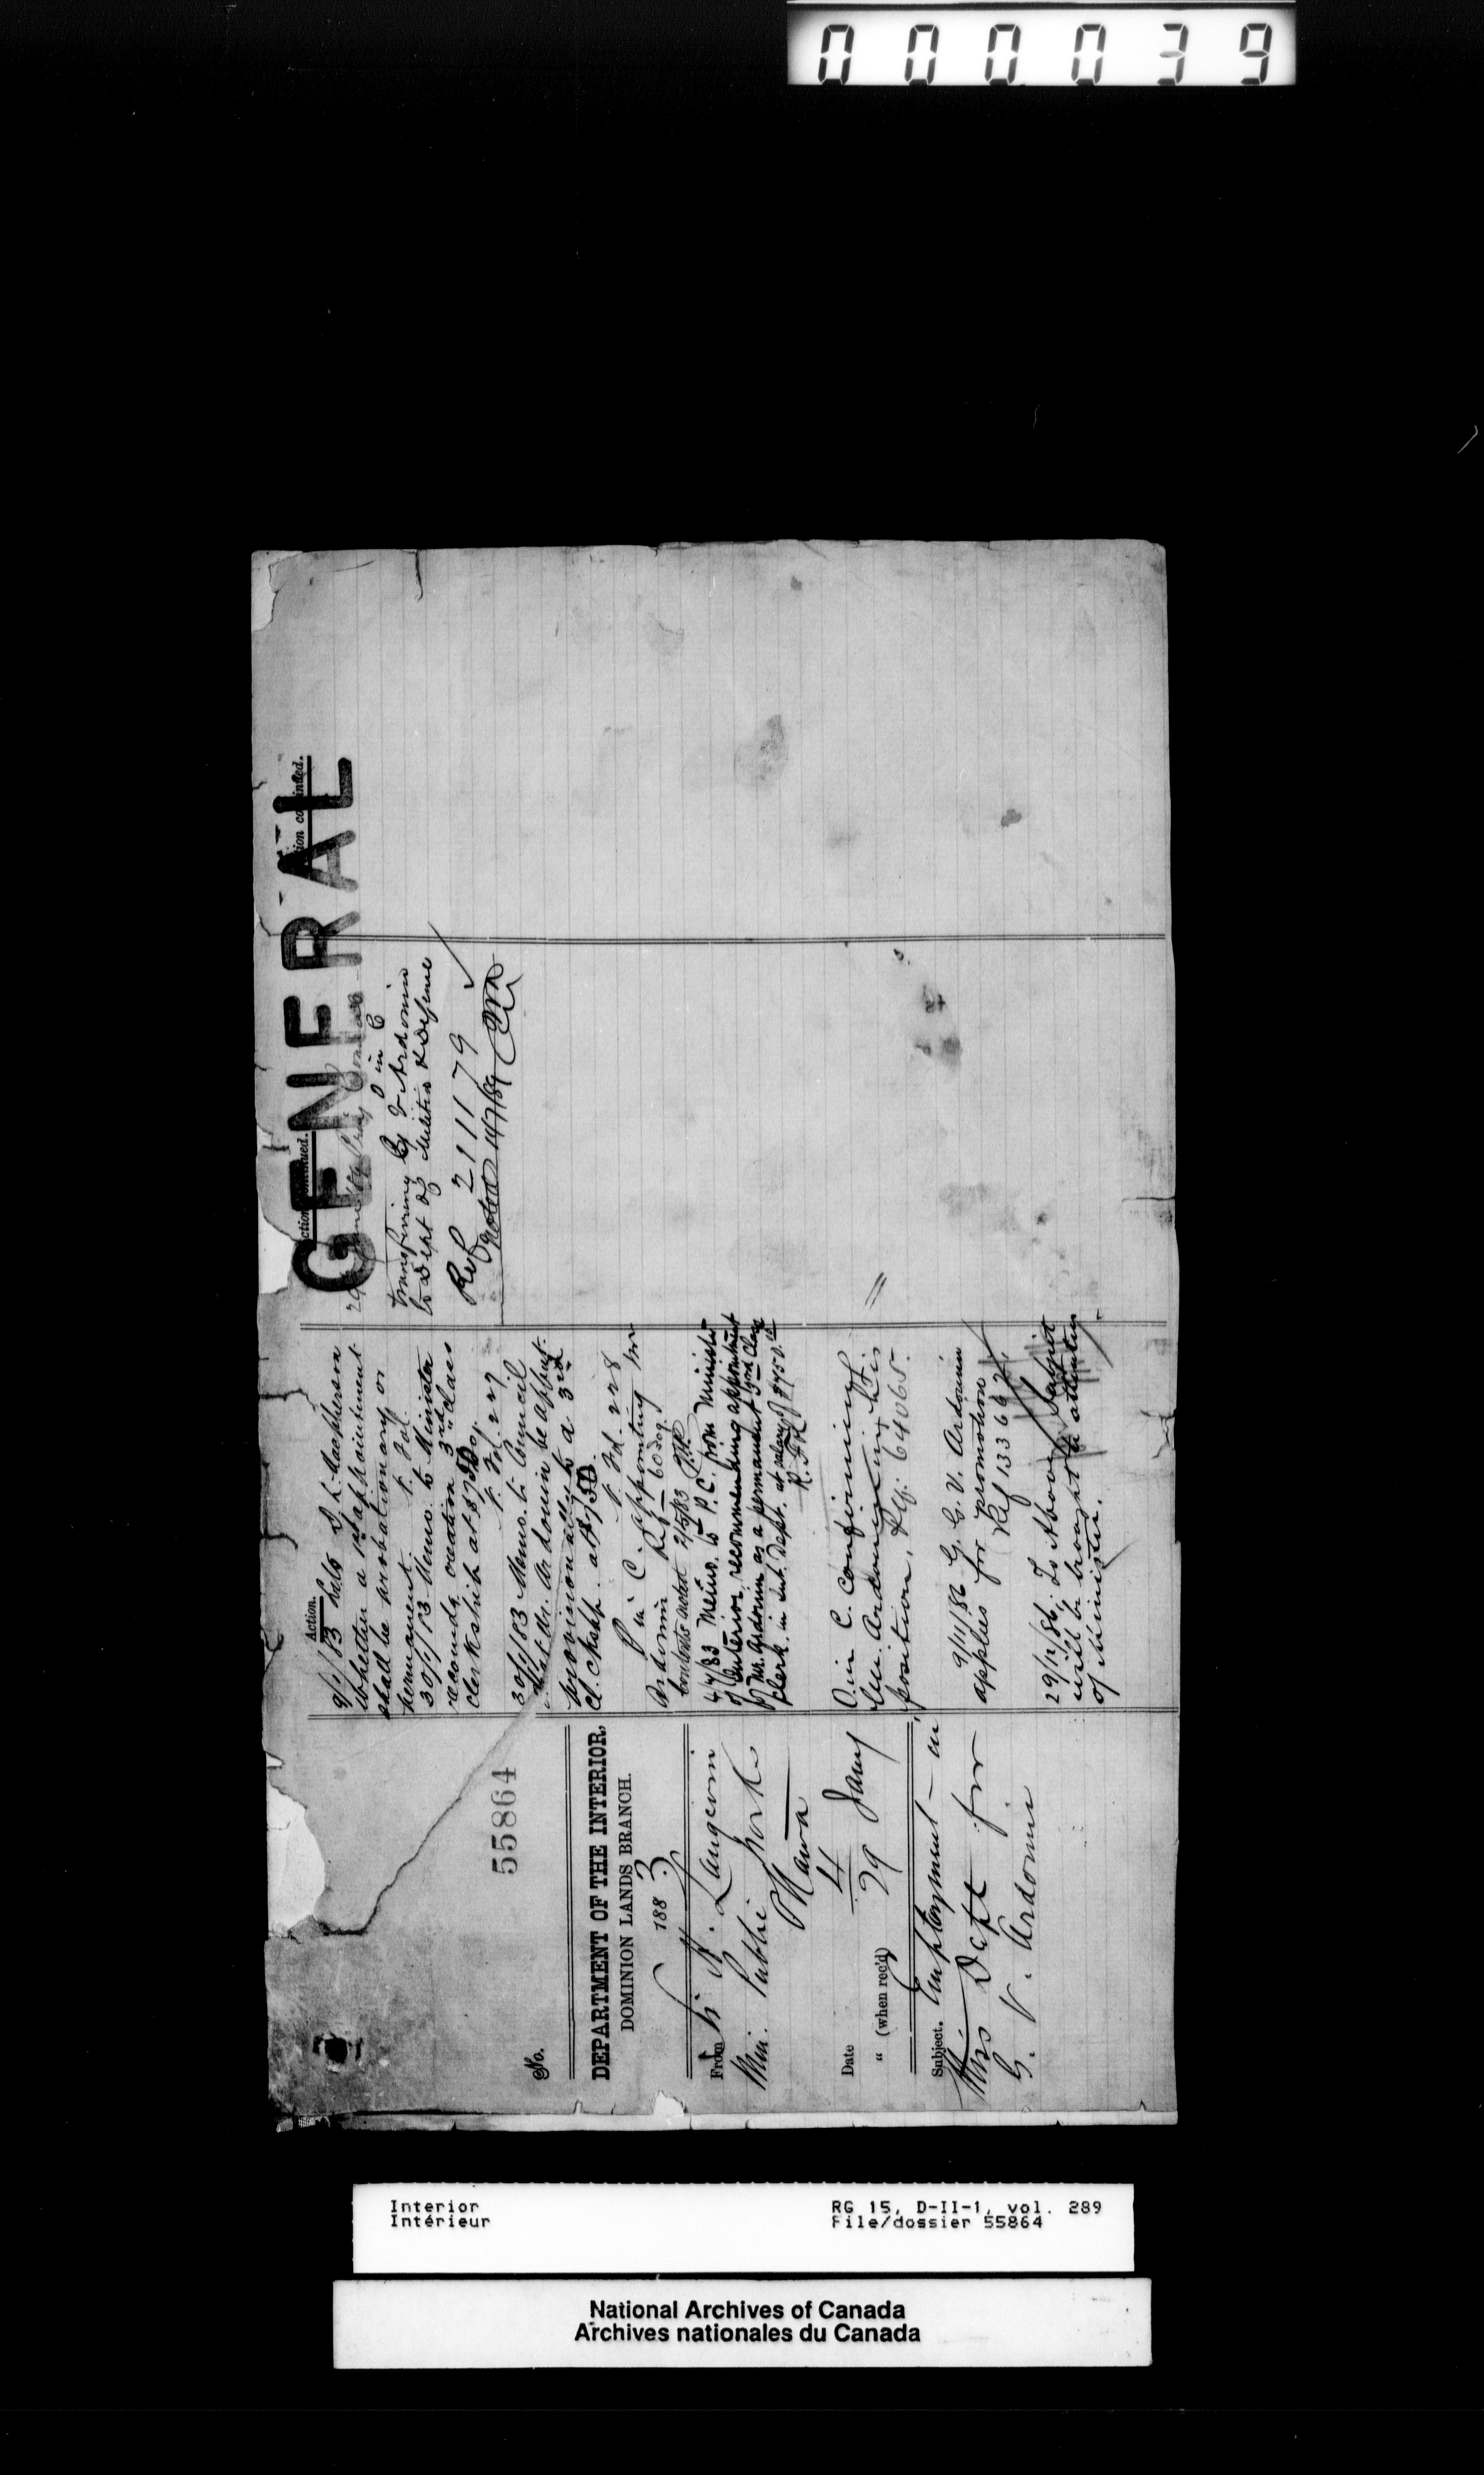 000039
No. 55864
DEPARTMENT OF THE INTERIOR,
DOMINION LANDS BRANCH.
1883
From Sir H. Langevin
Min. Public Works
Ottawa
Date 4
" (when rec'd) 29 Jany
Subject. Employment - in
this Dept for
G. V. Ardouin
Action.
9/1/83 D. L. Macpherson
whether a 1st appointment
shall be probationary or
permanent. F. Fol.
30/1/83 Memo. to Minister
recomdg creation 3rd class
clerkship at $750.
F. Fol. 227
30/1/83 Memo. to Council
that Mr. Ardouin be appnt.
provisionally to a 3rd
cl. ckshp. at $750.
F. Fol. 228
O in C. appointing Mr
Ardouin Ref - 60509.
Contents noted 2/5/83
4/4/83 Memo. to P.C. from Minister
of Interior recommending appointment
of Mr. Ardouin as a permanent 3rd Class
Clerk in Int. Dept. at salary of $750.00
O. in C. confirming
Mr. Ardouin in his
position. Ref: 64065.
9/11/86 G. G. V. Ardouin
applies for promotion
Ref 133662
29/12/86. To Above subject
will be brought to attention
of Minister.
Action continued.
GENERAL
29 June /89 Privy Council
O in C
transferring G V Ardouin
to Dept of Militia & Defence
Ref 211179
Noted 14/7/89
Action continued.
Interior
Intérieur
RG 15, D-II-1, vol. 289
File/dossier 55864
National Archives of Canada
Archives nationales du Canada